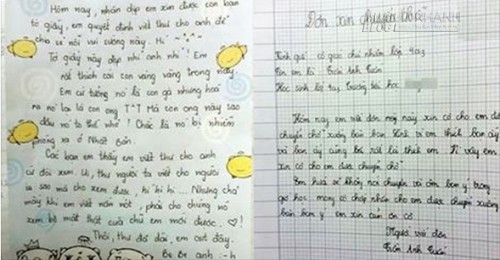 Hôm nay, nhân dịp em xin được con bạn
tờ giấy, em quyết định viết thư cho anh để
chia sẻ nỗi vui sướng này. Hi ~^^~
Tờ giấy này đẹp nhỉ anh nhỉ! Em
rất thích cái con vàng vàng trong này
Em cứ tưởng nó là con gà nhưng hoá
ra nó lại là con ong T^T Mà con ong này sao
đầu nó to thế nhỉ? Chắc là nó bị nhiễm
phóng xạ ở Nhật Bản.
Các bạn em thấy em viết thư cho anh
cứ đòi xem. Ui, thư người ta viết cho người
ta sao mà cho xem được, hi hi hi ... Nhưng chả
mấy khi em viết văn một, phải cho chúng nó
xem bộ mặt thật của chú em mới được. ♡!
Thôi, thư đã dài, em dứt đây.
Bè Bè anh :-h
Đơn xin chuyển chỗ
Kính gửi cô giáo chủ nhiệm lớp 4a3
Em tên là Trần Anh Tuấn
Học sinh lớp 4a3 trường tiểu học
Hôm nay em viết đơn này xin cô cho em được
chuyển chỗ xuống bàn bạn Kinh vì em thích bạn ấy
và bạn ấy cũng bảo rất là thích em. Vì vậy em
xin cô cho em được chuyển chỗ
Em hứa sẽ không nói chuyện và ôm bạn ý trong
giờ học, mong cô chấp nhận cho em được chuyển xuống
bàn bạn ý em xin cảm ơn cô
Người viết đơn
Trần Anh Tuấn